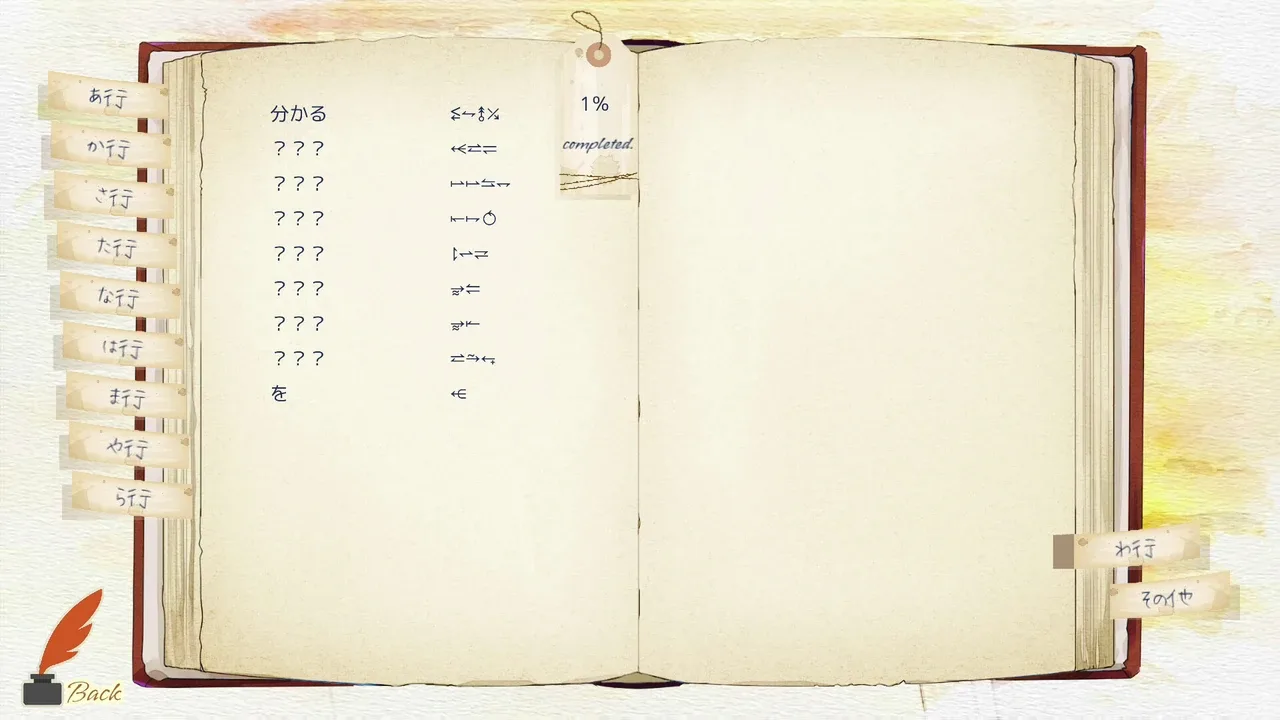 あ行
か行
さ行
た行
な行
は行
ま行
や行
ら行
分かる
？？？
？？？
？？？
？？？
？？？
？？？
？？？
を
1%
completed.
わ行
その他
Back